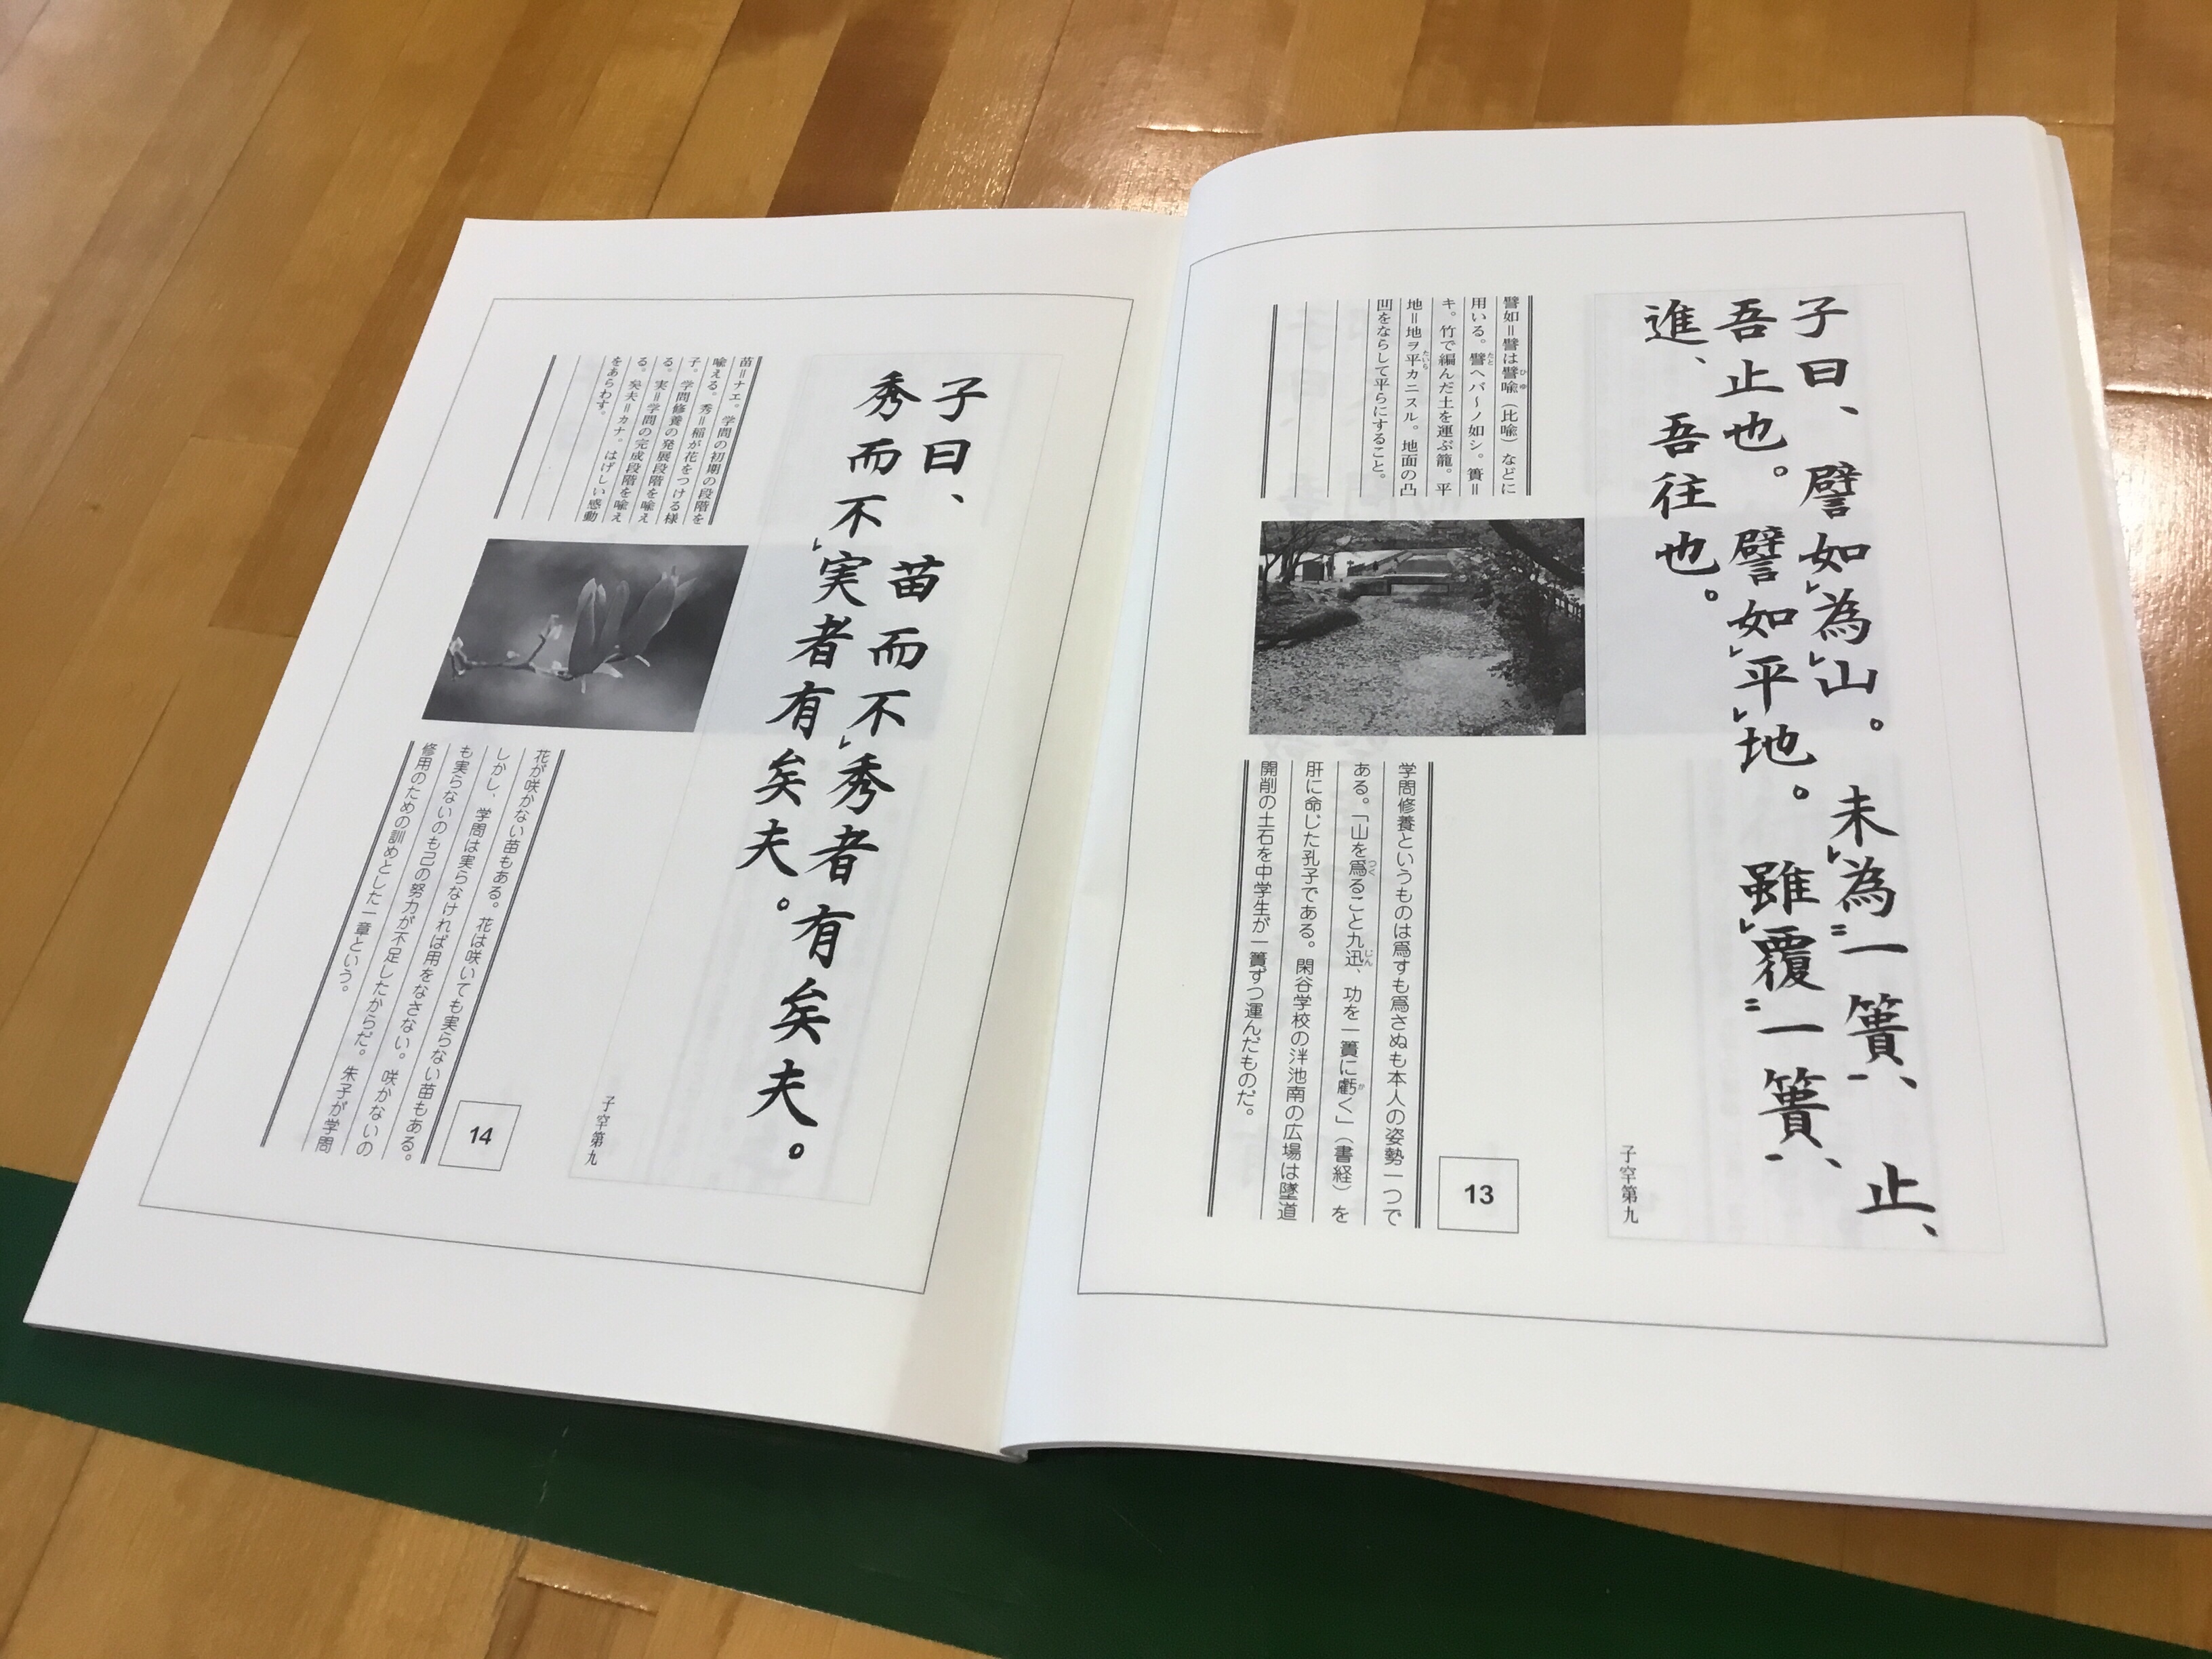 子曰、譬如㆑為㆑山。未㆑為㆓一簣㆒、止、
吾止也。譬如㆑平㆑地。雖㆑覆㆓一簣㆒、
進、吾往也。
子罕第九
譬如＝譬は譬喩（比喩）などに
用いる。譬ヘバ～ノ如シ。簣＝
キ。竹で編んだ土を運ぶ籠。平
地＝地ヲ平カニスル。地面の凸
凹をならして平らにすること。
13
学問修養というものは爲すも爲さぬも本人の姿勢一つで
ある。「山を爲ること九迅、功を一簣に虧く」（書経）を
肝に命じた孔子である。閑谷学校の泮池南の広場は墜道
開削の土石を中学生が一簣ずつ運んだものだ。
子曰、苗而不㆑秀者有矣夫。
秀而不㆑実者有矣夫。
子罕第九
苗＝ナエ。学問の初期の段階を
喩える。秀＝稲が花をつける様
子。学問修養の発展段階を喩え
る。実＝学問の完成段階を喩え
る。矣夫＝カナ。はげしい感動
をあらわす。
14
花が咲かない苗もある。花は咲いても実らない苗もある。
しかし、学問は実らなければ用をなさない。咲かないの
も実らないのも己の努力が不足したからだ。朱子が学問
修用のための訓めとした一章という。